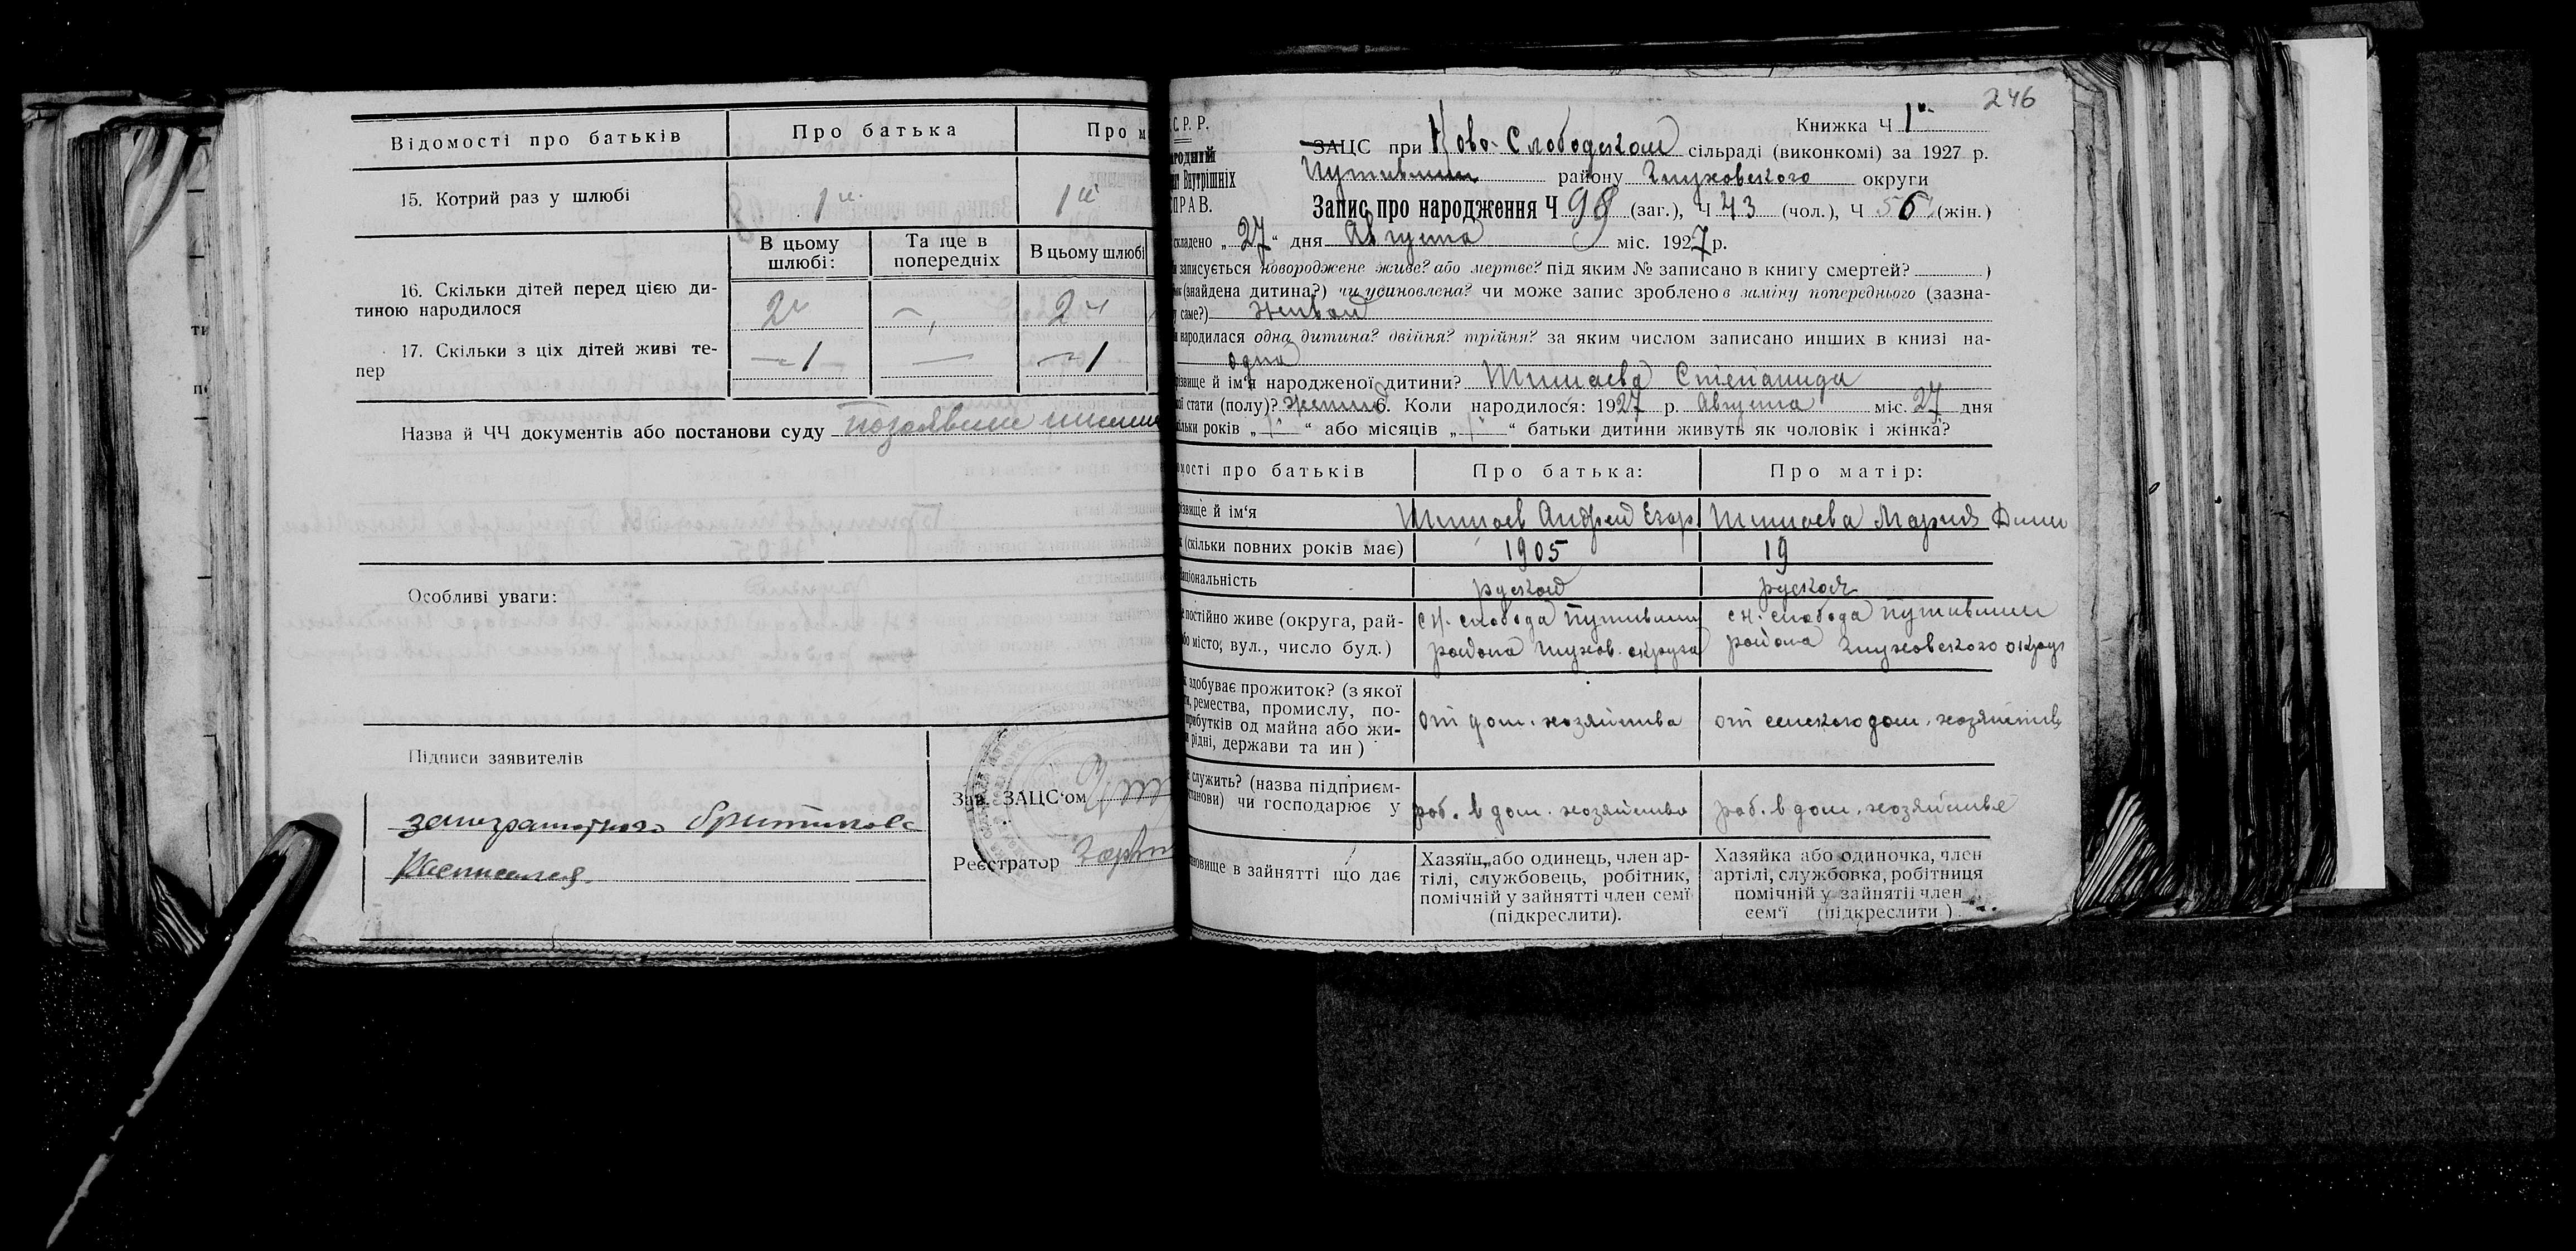 Відомості про батьків
Про батька
Про м
15. Котрий раз у шлюбі
1й
1й
В цьому шлюбі:
Та ще в попередніх
В цьому шлюбі
16. Скільки дітей перед цією ди-
тиною народилося
2
2
17. Скільки з ціх дітей живі те-
пер
1
—
1
Назва й ЧЧ документів або постанови суду
Особливі уваги:
Підписи заявителів
Расписался
Зав. ЗАЦС'ом
Реєстратор
246
С. Р. Р.
Внутрішніх
ПРАВ.
Книжка Ч 1
ЗАЦС при Ново-Слободском сільраді (виконкомі) за 1927 р.
району Глуховского округи
Запис про народження Ч 98 (заг.), Ч 43 (чол.), Ч 56 (жін.)
складено „27“ дня Августа міс. 1927 р.
записується новороджене живе? або мертве? під яким № записано в книгу смертей? )
(знайдена дитина?) чи усиновлена? чи може запис зроблено в заміну попереднього (зазна-
саме?) живой
народилася одна дитина? двійня? трійня? за яким числом записано инших в книзі на-
одна
різвище й ім'я народженої дитини? Шишаева Степанида
стати (полу)? 6. Коли народилося: 1927 р. Августа міс. 27 дня
ільки років „ “ або місяців „ “ батьки дитини живуть як чоловік і жінка?
мості про батьків
Про батька:
Про матір:
різвище й ім'я
Шишаев Андрей Егор
Шишаева Мария Дими
(скільки повних років має)
1905
19
аціональність
руской
руская
постійно живе (округа, рай-
бо місто, вул., число буд.)
с Н. слобода Путивльш
района Глухов. округа
с Н. слобода Путивльш
района Глуховского округ
здобуває прожиток? (з якої
ремества, промислу, по-
прибутків од майна або жи-
рідні, держави та ин)
от дом. хозяйства
от сельского дом. хозяйств
служить? (назва підприєм-
станови) чи господарює у
раб. в дом. хозяйстве
раб. в дом. хозяйстве
новище в зайнятті що дає
Хазяїн, або одинець, член ар-
тілі, службовець, робітник,
помічній у зайнятті член семї
(підкреслити).
Хазяйка або одиночка, член
артілі, службовка, робітниця
помічній у зайнятії член
сем'ї (підкреслити)